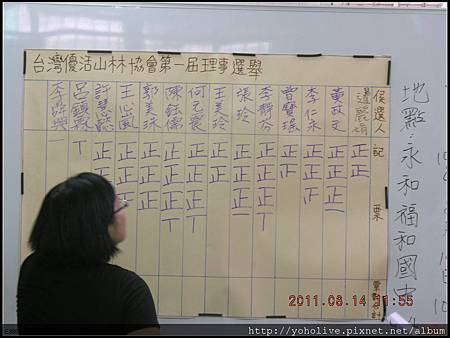 台灣優活山林協會第一屆理事選舉
候選人 記票 票數合計
溫麗娟 正正
黃政文 正正正一
李仁永 正正正
曾寶瑶 正正
李靜芬 正正正丅
張玲 正正正一
王美玲 正正
何元震 正正正丅
陳鈺儒 正正正丅
郭美珠 正正正
王心鳳 正正正
許慧懿 正正
呂鎮興 丅
李㫒興 一
地點:永和福和國中
2011.08.14 11:55
http://yoholive.pixnet.net/album